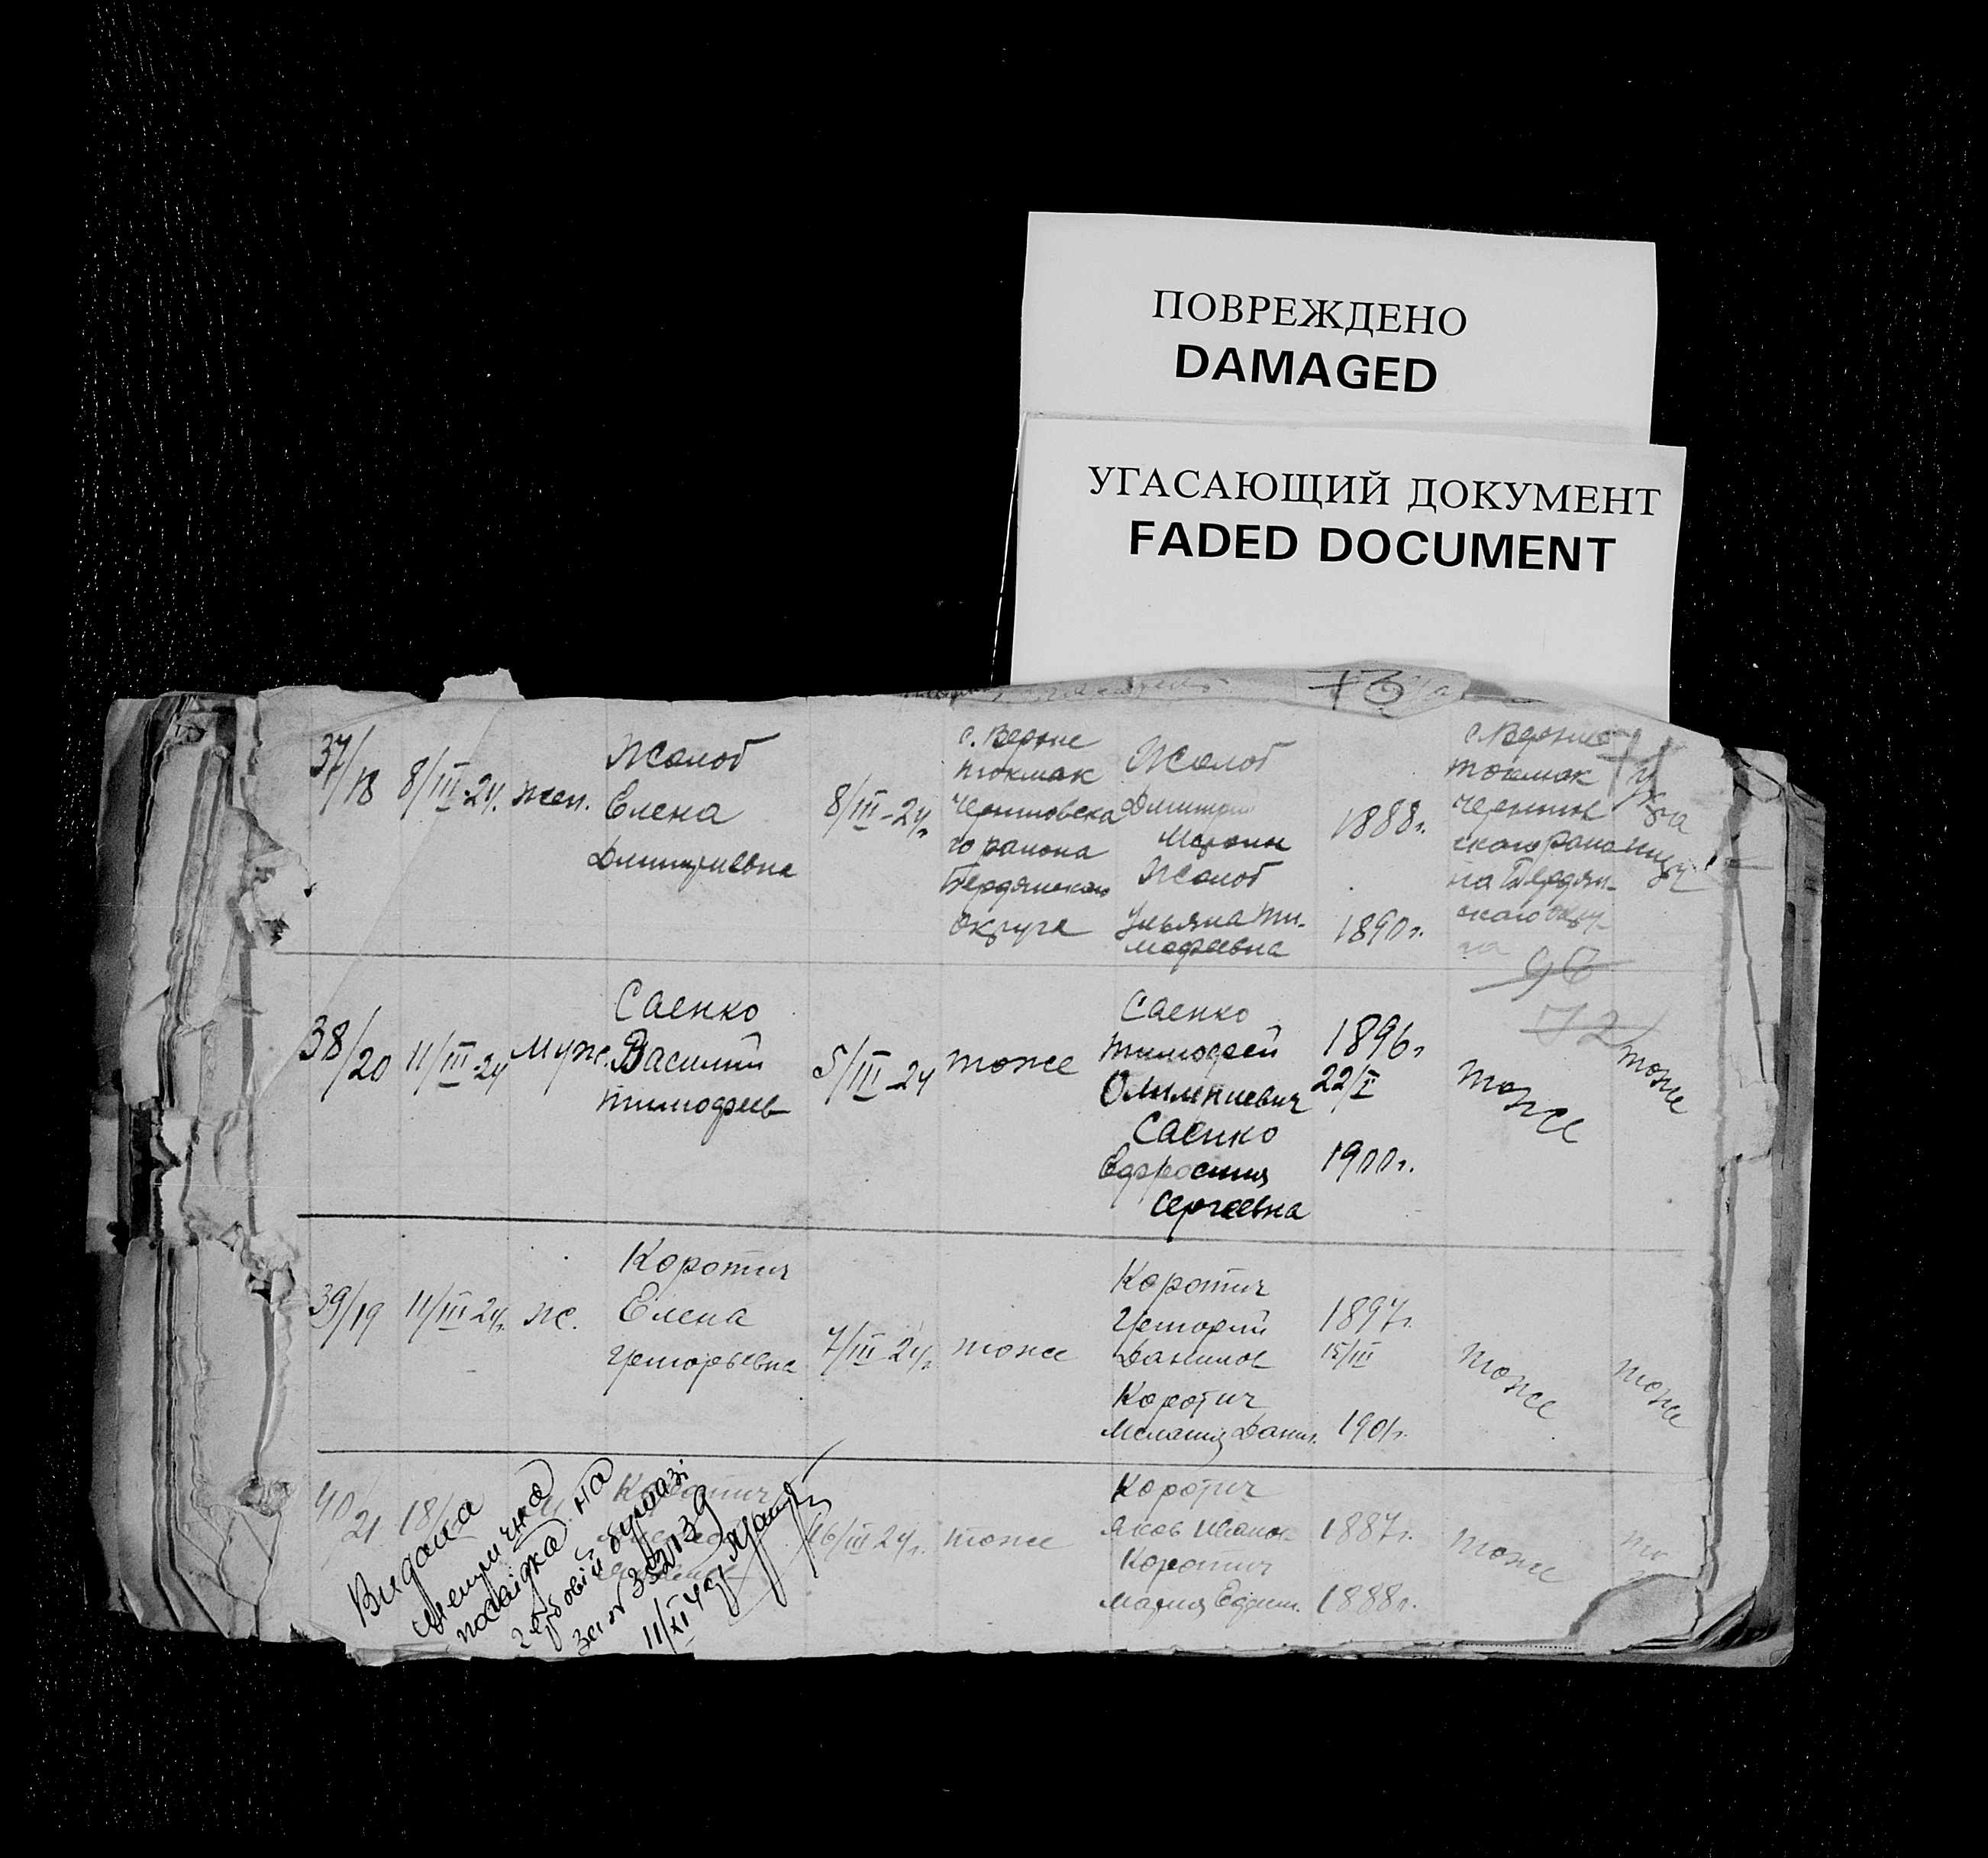 ПОВРЕЖДЕНО
DAMAGED
УГАСАЮЩИЙ ДОКУМЕНТ
FADED DOCUMENT
73
37/18
8/III-24.
жен.
Жолоб
Елена
Димитриевна
8/III-24г.
с. Верхне
токмак
Черниговска
го района
Бердянского
округа
Жолоб
Димитрий
Жолоб
Ульяна Ти-
мофеевна
1888г.
1890г.
с. Верхне
токмак
Чернигов
ского райо
на Бердян-
ского окру-
га
96
72
38/20
11/III-24
Муж.
Саенко
Василий
Тимофеев
5/III-24
тоже
Саенко
Тимофей
Саенко
Ефросиния
Сергеевна
1896г
22/I
1900г.
тоже
тоже
39/19
11/III-24г.
ж.
Коротич
Елена
Григорьевна
7/III-24г.
тоже
Коротич
Григорий
Данилов
Коротич
Мелания Данил.
1897г.
15/III
1901г.
тоже
тоже
40/21
18/
Коротич
16/III-24г.
тоже
Коротич
Яков Иванов
Коротич
Мария Ефим.
1887г.
1888г.
тоже
то
Видана
метрична
посвідка на
гербовій бумазі
за № 352139